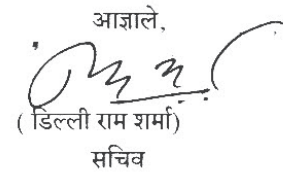 आज्ञाले,
( डिल्ली राम शर्मा)
सचिव